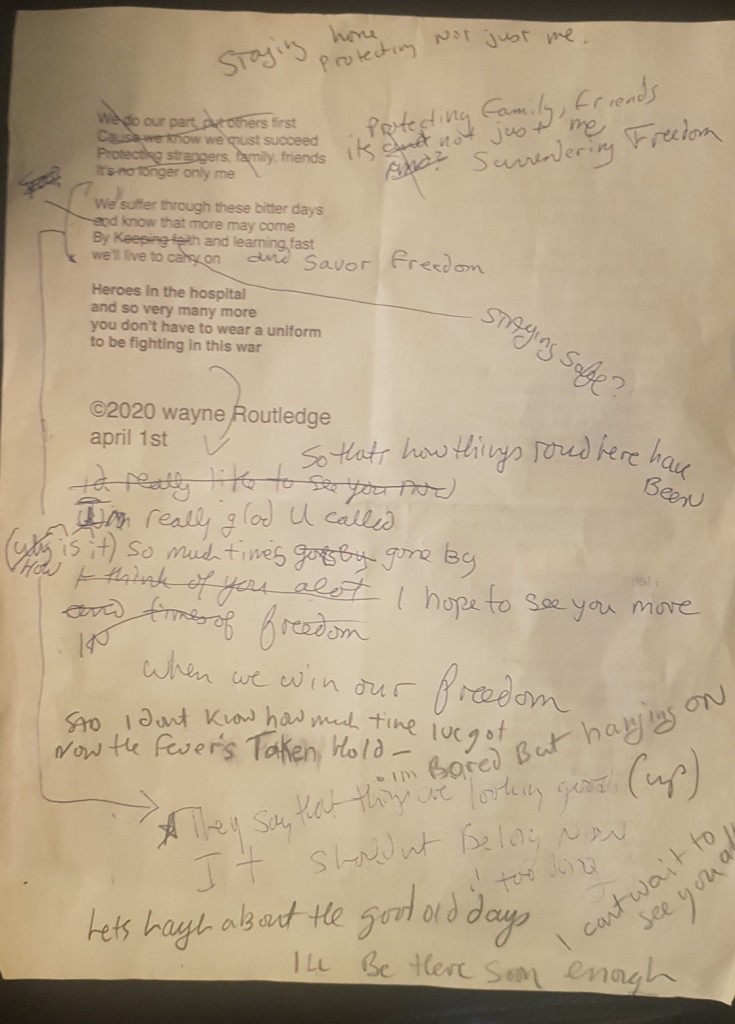 Staying home
protecting Not just me.
We do our part, put others first
Cause we know we must succeed
Protecting strangers, family, friends
It's no longer only me
Protecting Family, Friends
its not just me
Surrendering Freedom
We suffer through these bitter days
and know that more may come
By Keeping faith and learning fast
we'll live to carry on and Savor Freedom
Staying Safe?
Heroes In the hospital
and so very many more
you don't have to wear a uniform
to be fighting in this war
©2020 wayne Routledge
april 1st
So thats how things roud here have
Been
Id really like to see you
Im really glad U called
(why is it) So much times goesby gone by
How
I think of you alot I hope to see you more
times of freedom
IN
when we win our freedom
I dont know how much time Ive got
Now the fever's Taken Hold –
im Bored But hanging on
They say that things are looking good (up)
It shouldnt Be long now
too long
I cant wait to
see you all
Lets laugh about the good old days
Ill Be there soon enough